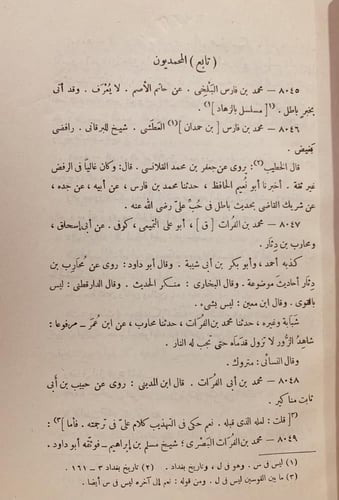 ( تابع ) المحمديون
٨٠٤٥ — محمد بن فارس البَلْخى . عن حاتم الأصم . لا يُعْرَف . وقد أتى
بخبر باطل . [ مسلسل بالزهاد ](١) .
٨٠٤٦ — محمد بن فارس [ بن حمدان ](١) العَطَشى . شيخ للبرقانى . رافضى
بَغيض .
قال الخطيب(٢): يروى عن جعفر بن محمد القلانسى . قال: وكان غاليًا فى الرفض
غير ثقة . أخبرنا أبو نُعيم الحافظ ، حدثنا محمد بن فارس ، عن أبيه ، عن جده ،
عن شَريك القاضى بحديث باطل فى حُبِّ علىّ رضى الله عنه .
٨٠٤٧ — محمد بن الفُرات [ ق ] ، أبو على التميمى ، كوفى . عن أبى إسحاق ،
ومحارب بن دِثَار .
كذبه أحمد ، وأبو بكر بن أبى شيبة . وقال أبو داود : روى عن مُحارب بن
دِثار أحاديث موضوعة . وقال البخارى : منكر الحديث . وقال الدارقطنى : ليس
بالقوى . وقال ابن معين : ليس بشىء .
شَبابة وغيره ، حدثنا محمد بن الفرات ، حدثنا محارب ، عن ابن عُمَر – مرفوعا :
شاهِدُ الزُّور لا تزول قدمَاه حتى تجب له النار .
وقال النسائى : متروك .
٨٠٤٨ — محمد بن أبى الفُرات . قال ابن المدينى : روى عن حبيب بن أبى
ثابت مناكير .
[ قلت : لعله الذى قبله . نعم حكى فى التهذيب كلام علىّ فى ترجمته . فأما ](٣) :
٨٠٤٩ — محمد بن الفُرات البَصْرى ؛ شيخ مسلم بن إبراهيم – فوثّقه أبو داود .
(١) ليس فى س . وهو فى ل ، وتاريخ بغداد . (٢) تاريخ بغداد ٣ – ١٦١
(٣) ما بين القوسين ليس فى ل . ومن قوله : نعم إلى آخره ليس فى س أيضا .